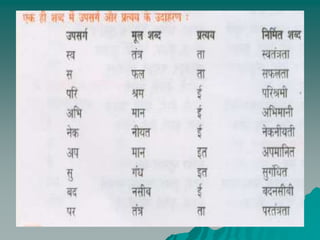 एक ही शब्द में उपसर्ग और प्रत्यय के उदाहरण :
उपसर्ग मूल शब्द प्रत्यय निर्मित शब्द
स्व तंत्र ता स्वतंत्रता
स फल ता सफलता
परि श्रम ई परिश्रमी
अभि मान ई अभिमानी
नेक नीयत ई नेकनीयती
अप मान इत अपमानित
सु गंध इत सुगंधित
बद नसीब ई बदनसीबी
पर तंत्र ता परतंत्रता